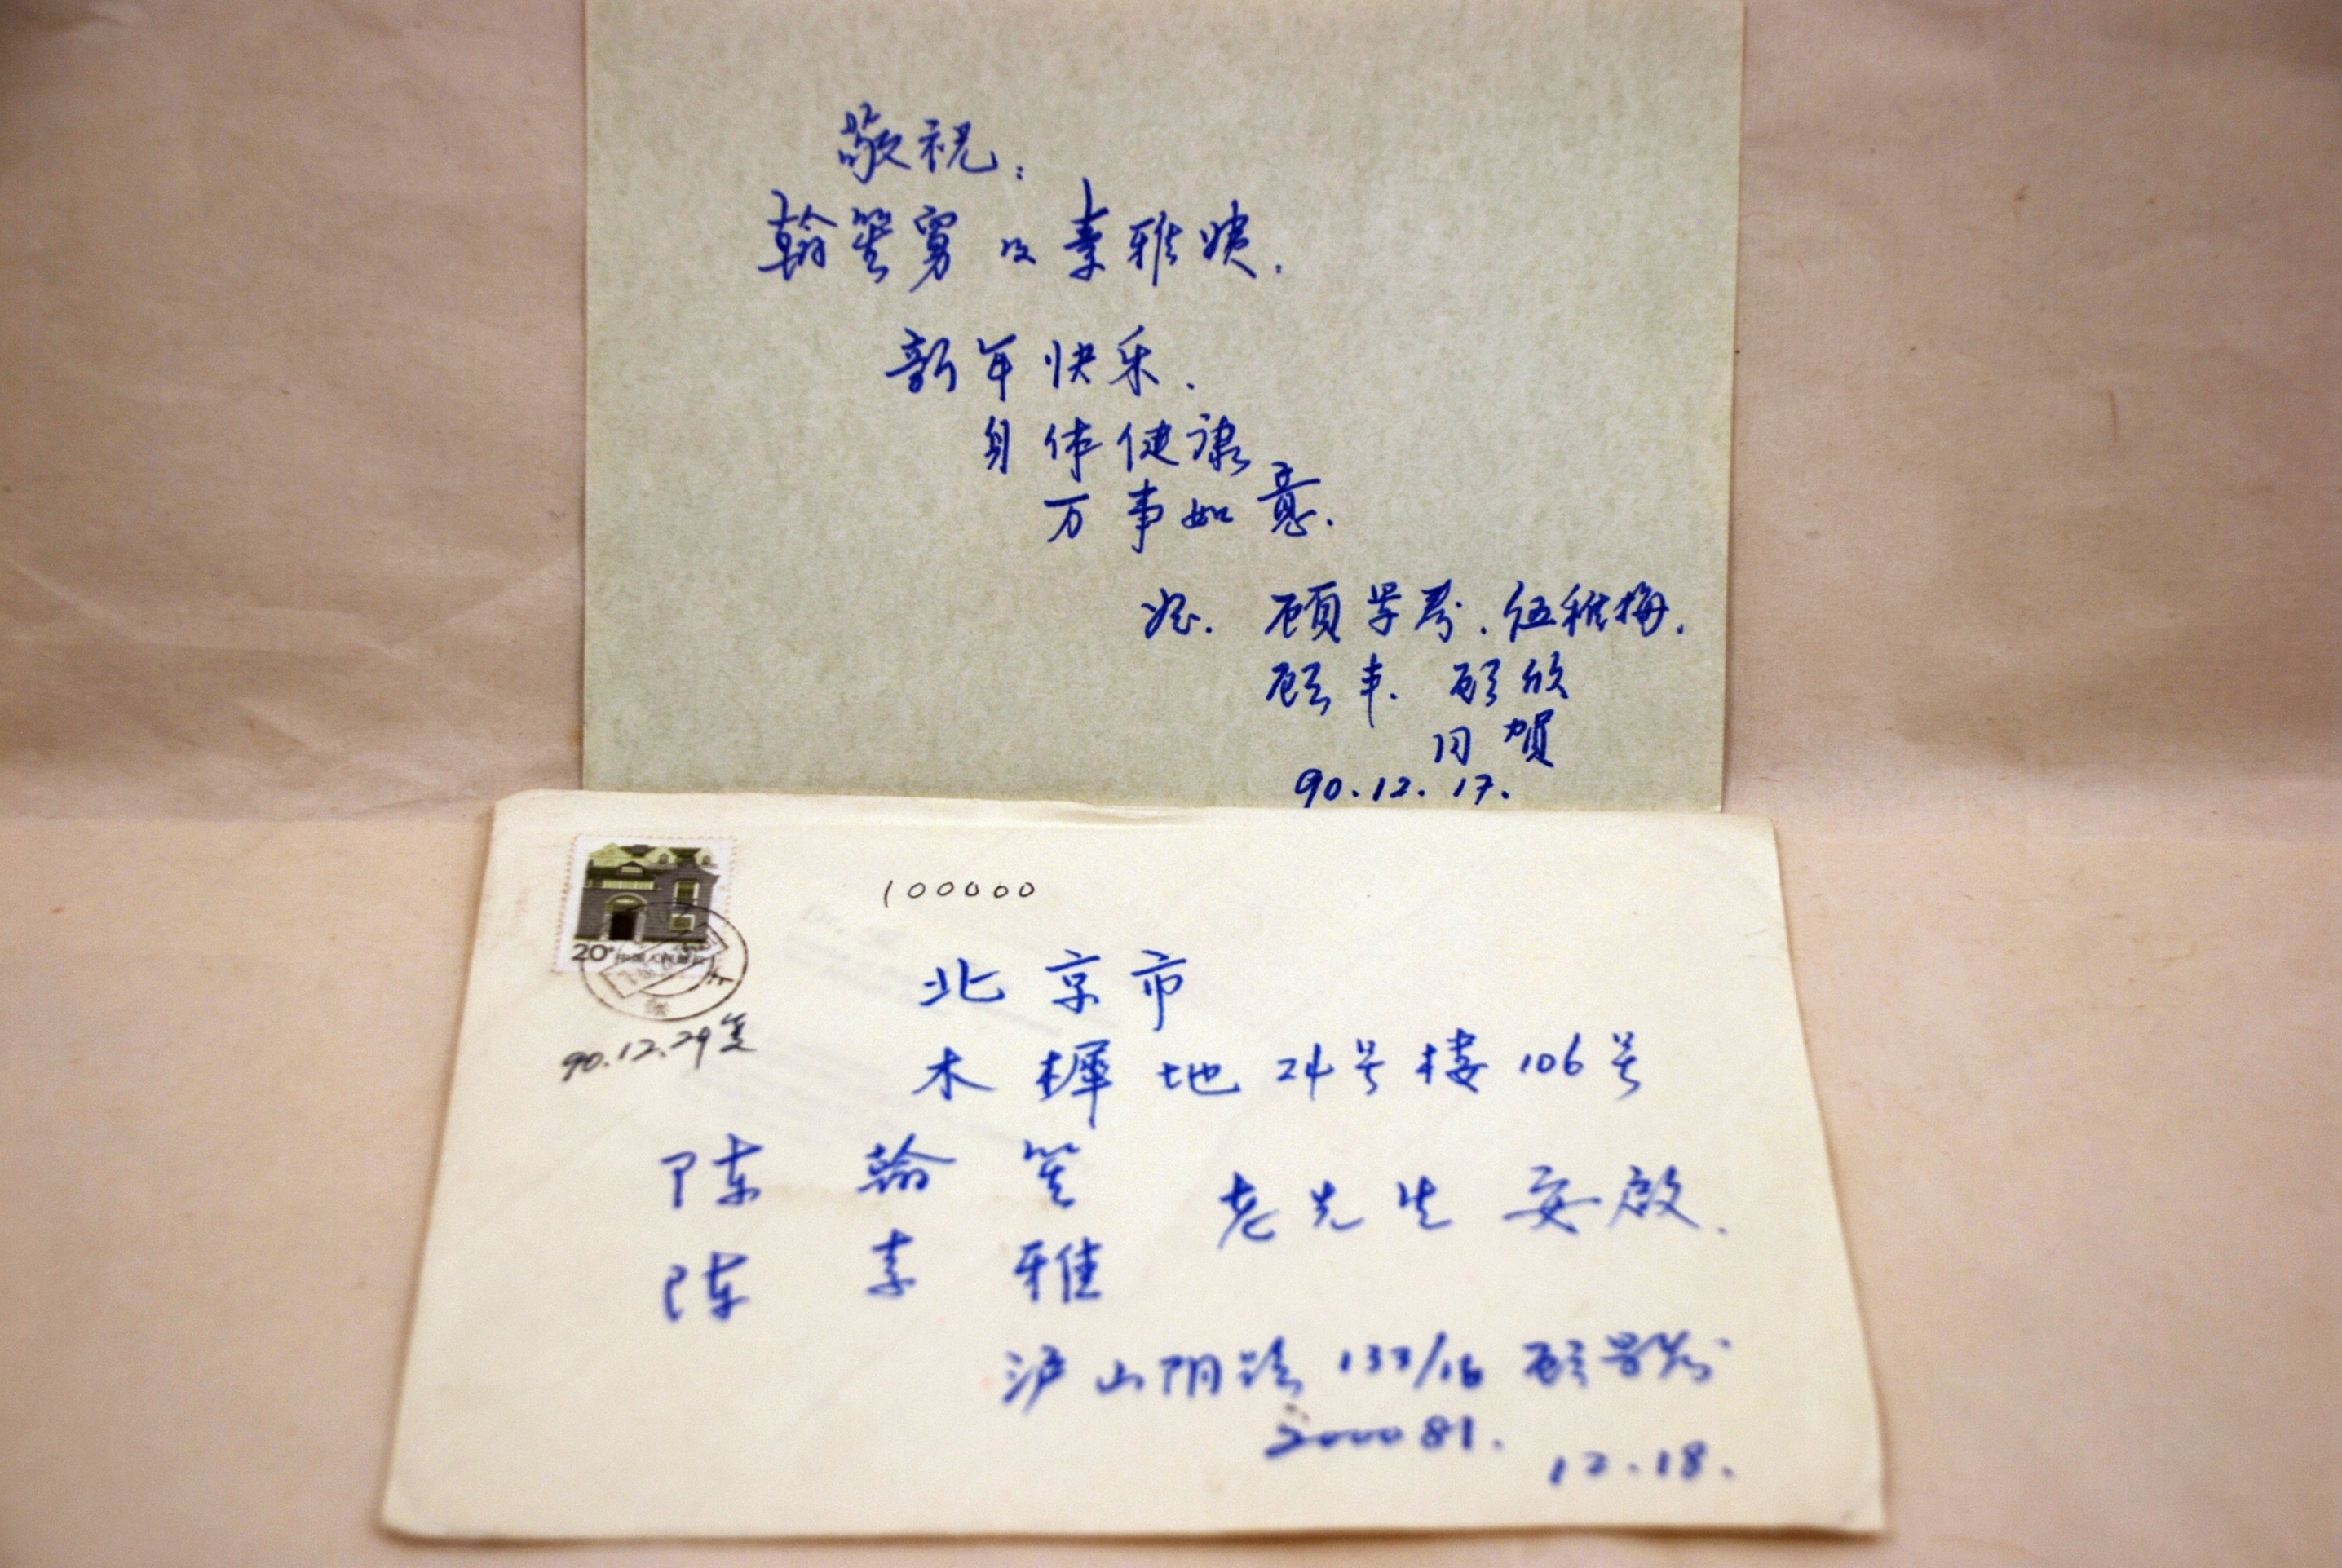 敬祝:
翰笙舅及素雅姨.
新年快乐.
身体健康
万事如意.
顾 伍稚梅.
顾丰. 顾欣
同贺
90.12.17.
20
中国人民邮政
100000
北京市
90.12.29复
木樨地24号楼106号
陈翰笙
老先生安启.
陈素雅
沪山阴路133/16 顾
200081.
12.18.